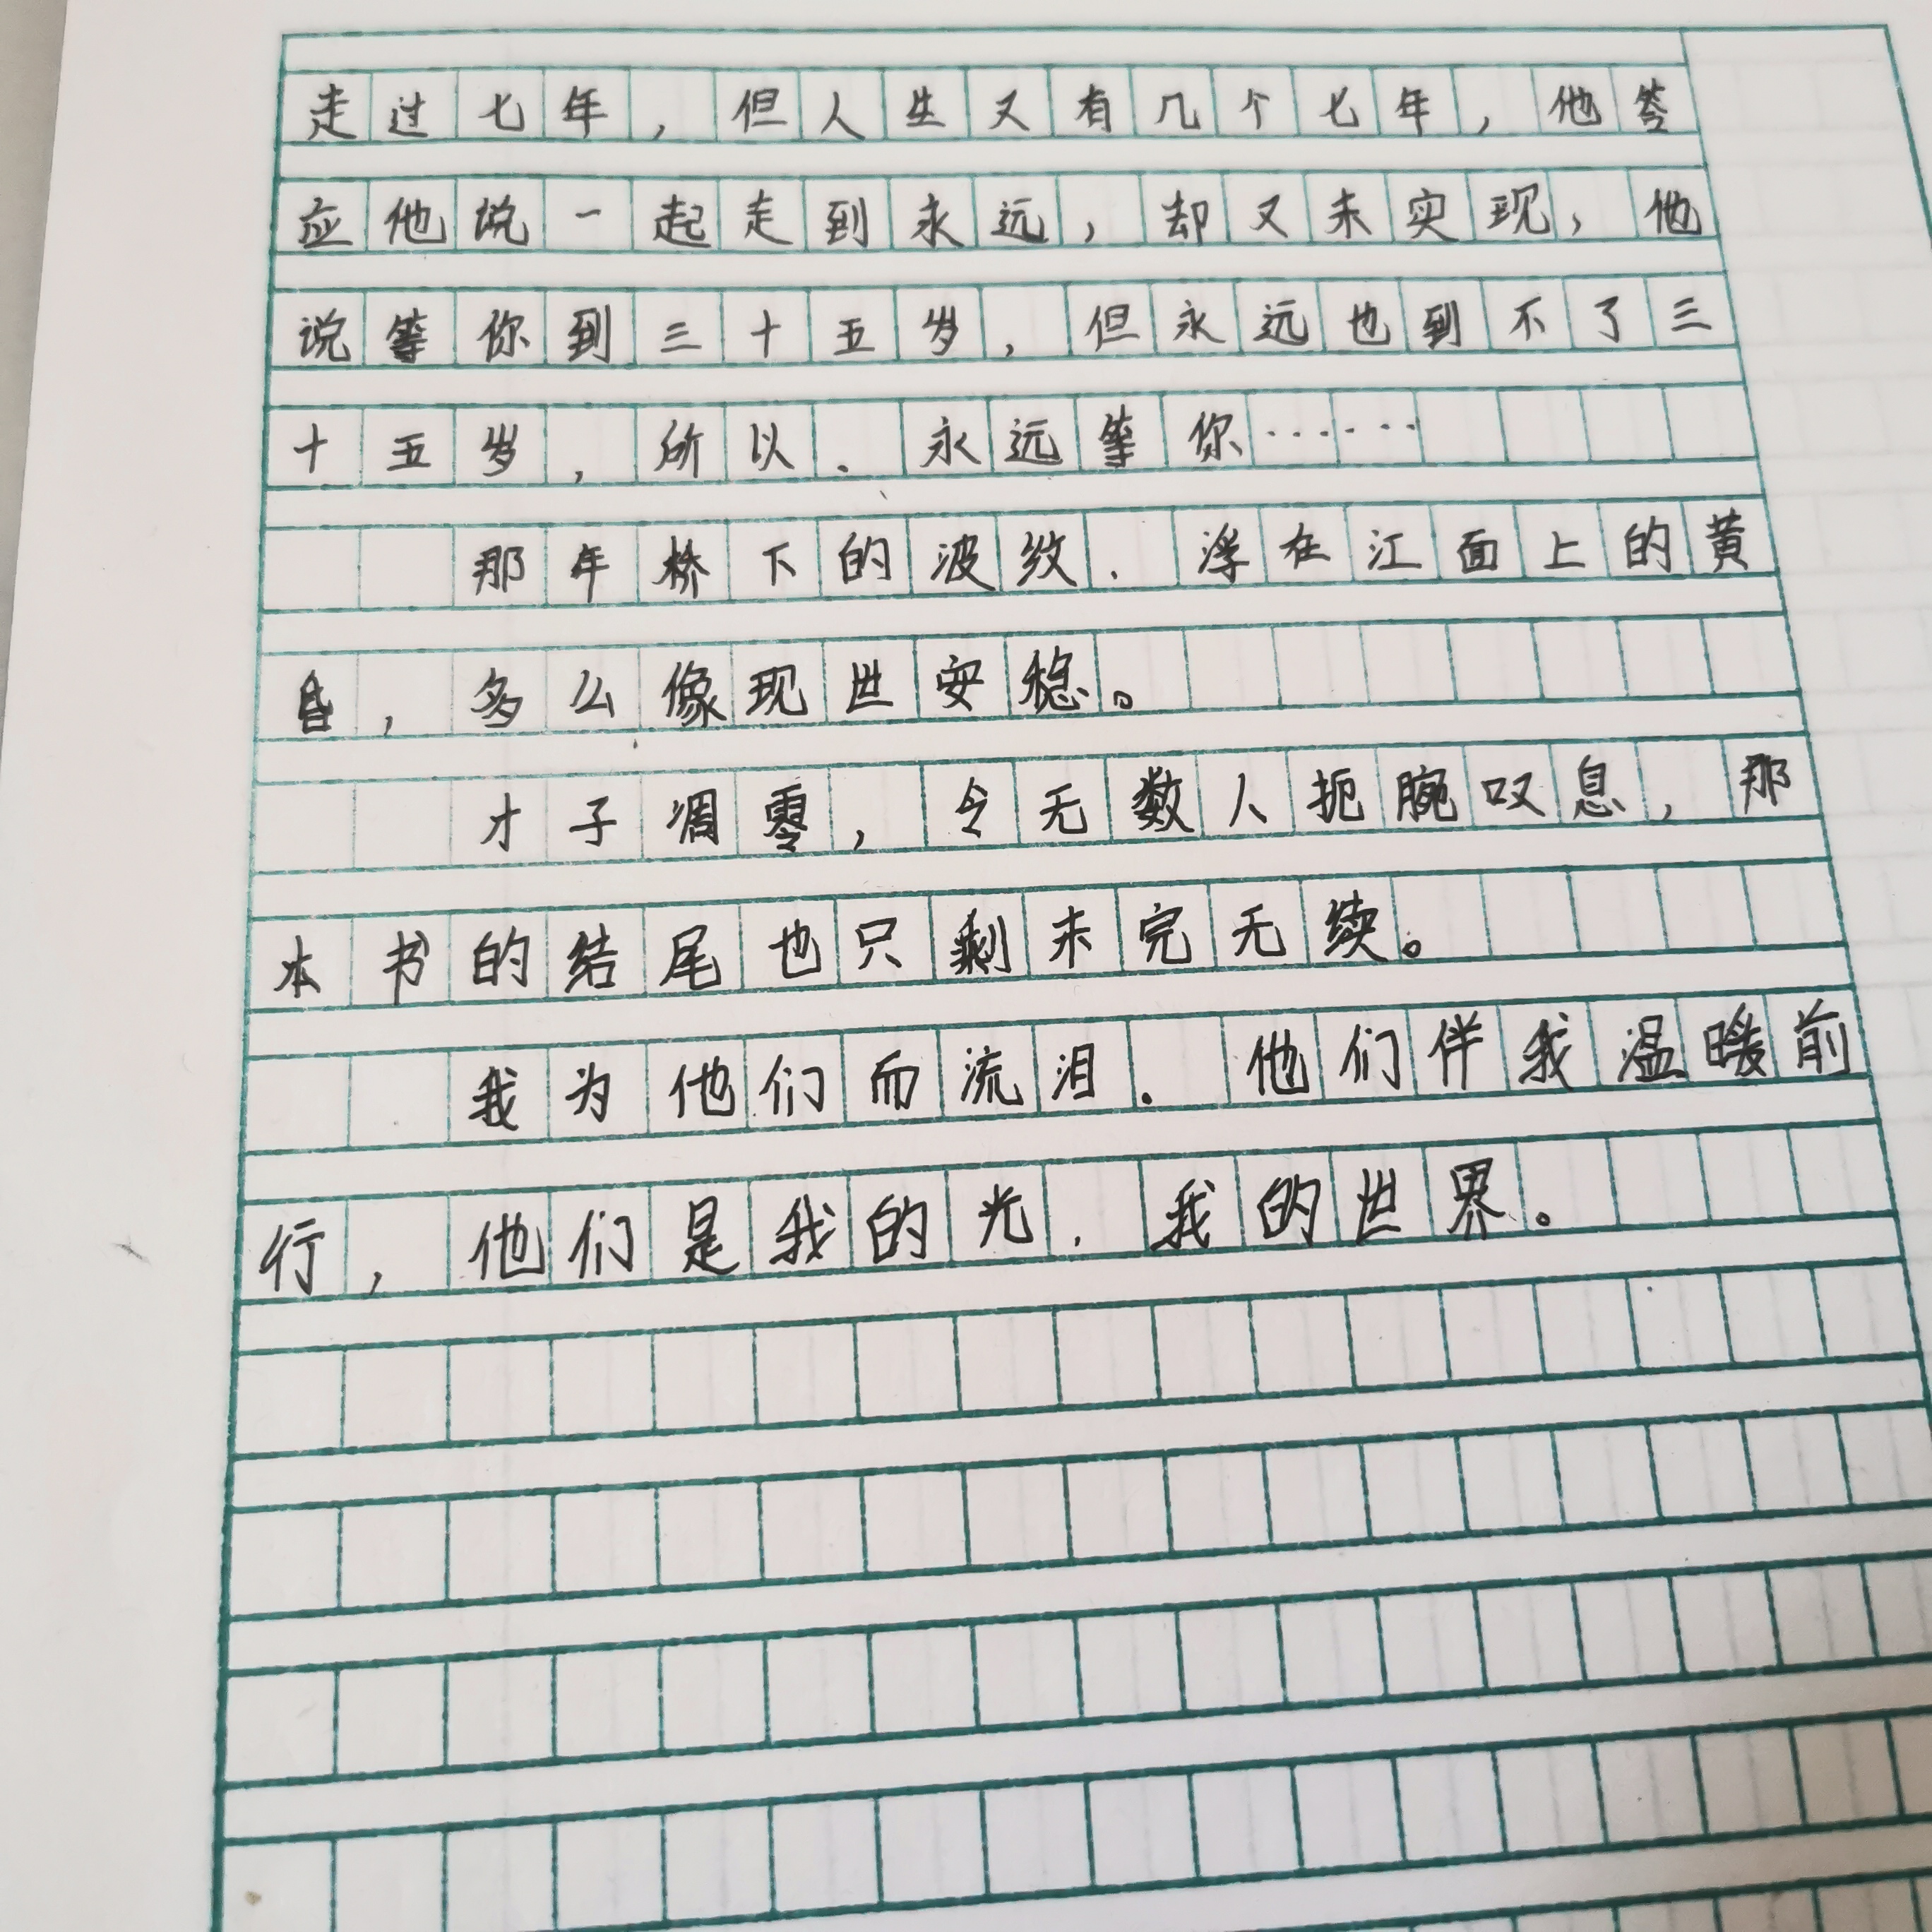 走过七年，但人生又有几个七年，他答
应他说一起走到永远，却又未实现，他
说等你到三十五岁，但永远也到不了三
十五岁，所以．永远等你……
那年桥下的波纹．浮在江面上的黄
昏，多么像现世安稳。
才子凋零，令无数人扼腕叹息，那
本书的结尾也只剩未完无续。
我为他们而流泪．他们伴我温暖前
行，他们是我的光．我的世界。